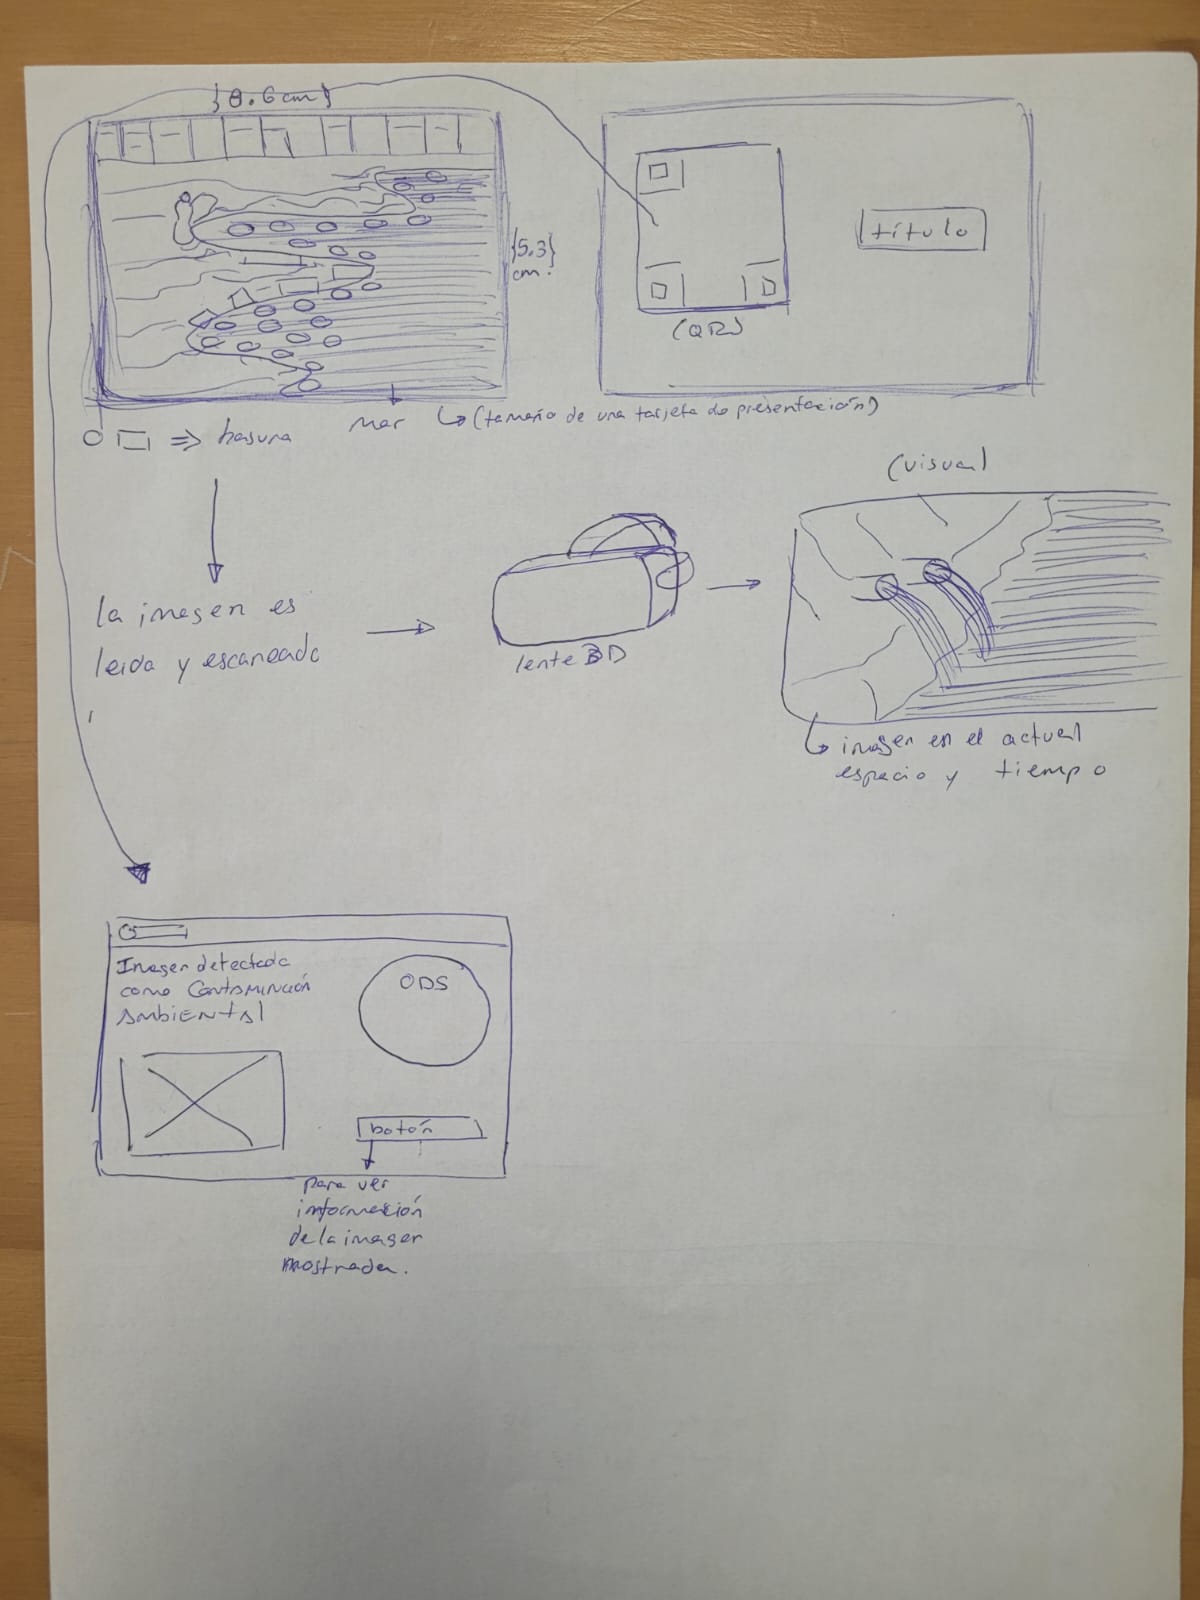 {8.6cm}
{5.3}
cm.
título
(QR)
(tamaño de una tarjeta de presentación)
mar
O □ => basura
(visual)
la imagen es
leida y escaneada
lente 3D
imagen en el actual
espacio y tiempo
Imagen detectada
como Contaminción
AMBIENTAL
ODS
botón
para ver
información
de la imagen
mostrada.